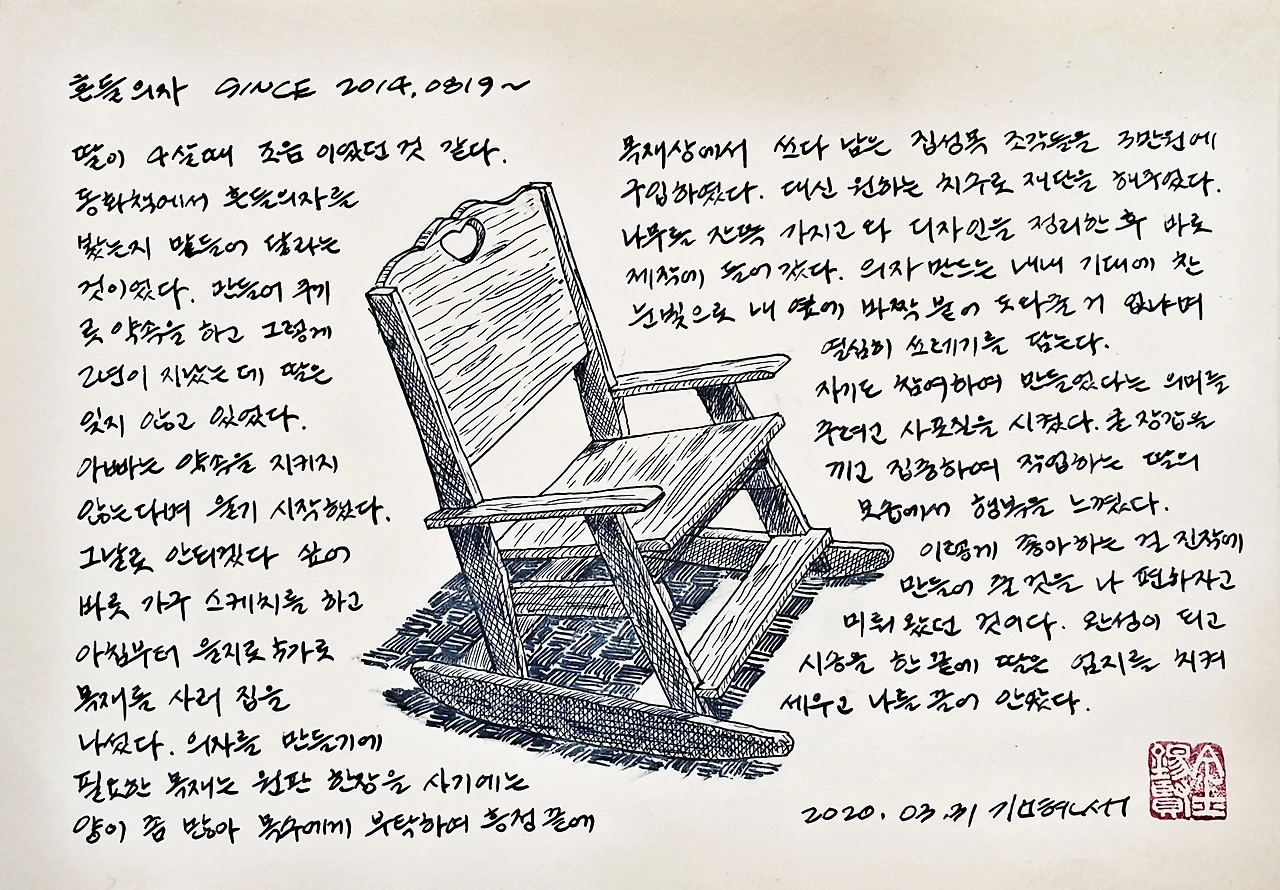 흔들의자 SINCE 2014.0819~
딸이 4살때 즈음 이었던 것 같다.
동화책에서 흔들의자를
봤는지 만들어 달라는
것이었다. 만들어 주기
로 약속을 하고 그렇게
2년이 지났는데 딸은
잊지 않고 있었다.
아빠는 약속을 지키지
않는다며 울기 시작했다.
그날로 안되겠다 싶어
바로 가구 스케치를 하고
아침부터 을지로 4가로
목재를 사러 집을
나섰다. 의자를 만들기에
필요한 목재는 원판 한장을 사기에는
양이 좀 많아 목수에게 부탁하여 흥정 끝에
목재상에서 쓰다 남은 집성목 조각들을 3만원에
구입하였다. 대신 원하는 치수로 재단을 해주었다.
나무를 잔뜩 가지고 와 디자인을 정리한 후 바로
제작에 들어 갔다. 의자 만드는 내내 기대에 찬
눈빛으로 내 옆에 바짝 붙어 도와줄 거 없냐며
열심히 쓰레기를 담는다.
자기도 참여하여 만들었다는 의미를
주려고 사포질을 시켰다. 큰 장갑을
끼고 집중하여 작업하는 딸의
모습에서 행복을 느꼈다.
이렇게 좋아하는 걸 진작에
만들어 줄 것을 나 편하자고
미뤄 왔던 것이다. 완성이 되고
시승을 한 끝에 딸은 엄지를 치켜
세우고 나를 끌어 안았다.
2020.03.31